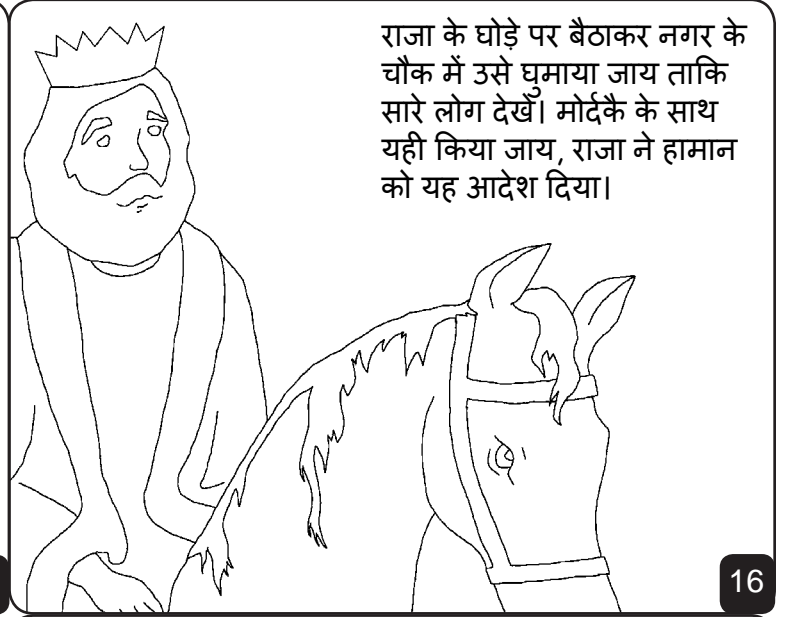 राजा के घोड़े पर बैठाकर नगर के
चौक में उसे घुमाया जाय ताकि
सारे लोग देखें। मोर्दकै के साथ
यही किया जाय, राजा ने हामान
को यह आदेश दिया।
16